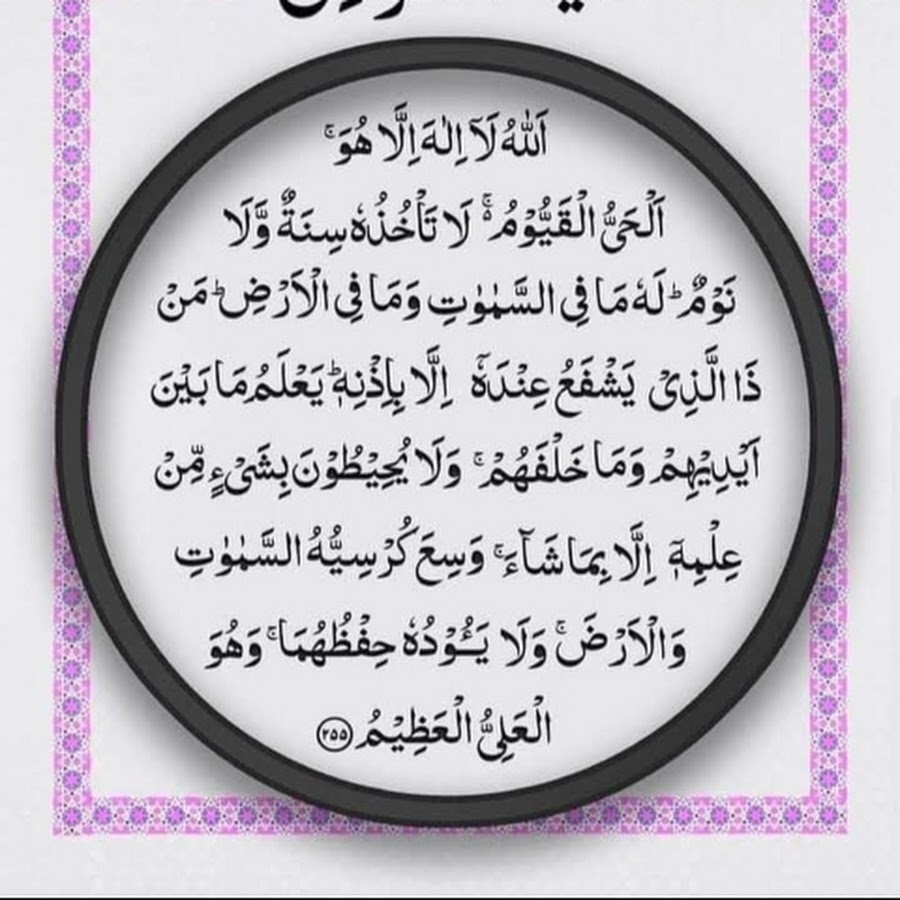 اَللّٰهُ لَاۤ اِلٰهَ اِلَّا هُوَ ۚ
اَلْحَیُّ الْقَیُّوْمُ ۚ۬ لَا تَاْخُذُهٗ سِنَةٌ وَّلَا
نَوْمٌ ؕ لَهٗ مَا فِی السَّمٰوٰتِ وَمَا فِی الْاَرْضِ ؕ مَنْ
ذَا الَّذِیْ یَشْفَعُ عِنْدَهٗۤ اِلَّا بِاِذْنِهٖ ؕ یَعْلَمُ مَا بَیْنَ
اَیْدِیْهِمْ وَمَا خَلْفَهُمْ ۚ وَلَا یُحِیْطُوْنَ بِشَیْءٍ مِّنْ
عِلْمِهٖۤ اِلَّا بِمَا شَآءَ ۚ وَسِعَ كُرْسِیُّهُ السَّمٰوٰتِ
وَالْاَرْضَ ۚ وَلَا یَـُٔوْدُهٗ حِفْظُهُمَا ۚ وَهُوَ
الْعَلِیُّ الْعَظِیْمُ ﴿۲۵۵﴾